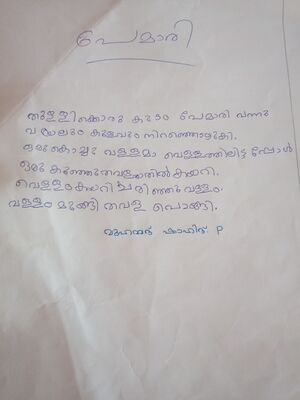 പേമാരി
തുള്ളിക്കൊരു കുടം പേമാരി വന്നു
വയലും കുളവും നിറഞ്ഞൊഴുകി.
ഒരു കൊച്ചു വള്ളമാ വെള്ളത്തിലിട്ടപ്പോൾ
ഒരു കുഞ്ഞുതവളയതിൽ കയറി.
വെള്ളം കയറി ചരിഞ്ഞു വള്ളം.
വള്ളം മുങ്ങി തവള പൊങ്ങി.
മുഹമ്മദ് ഷാഹിദ് P